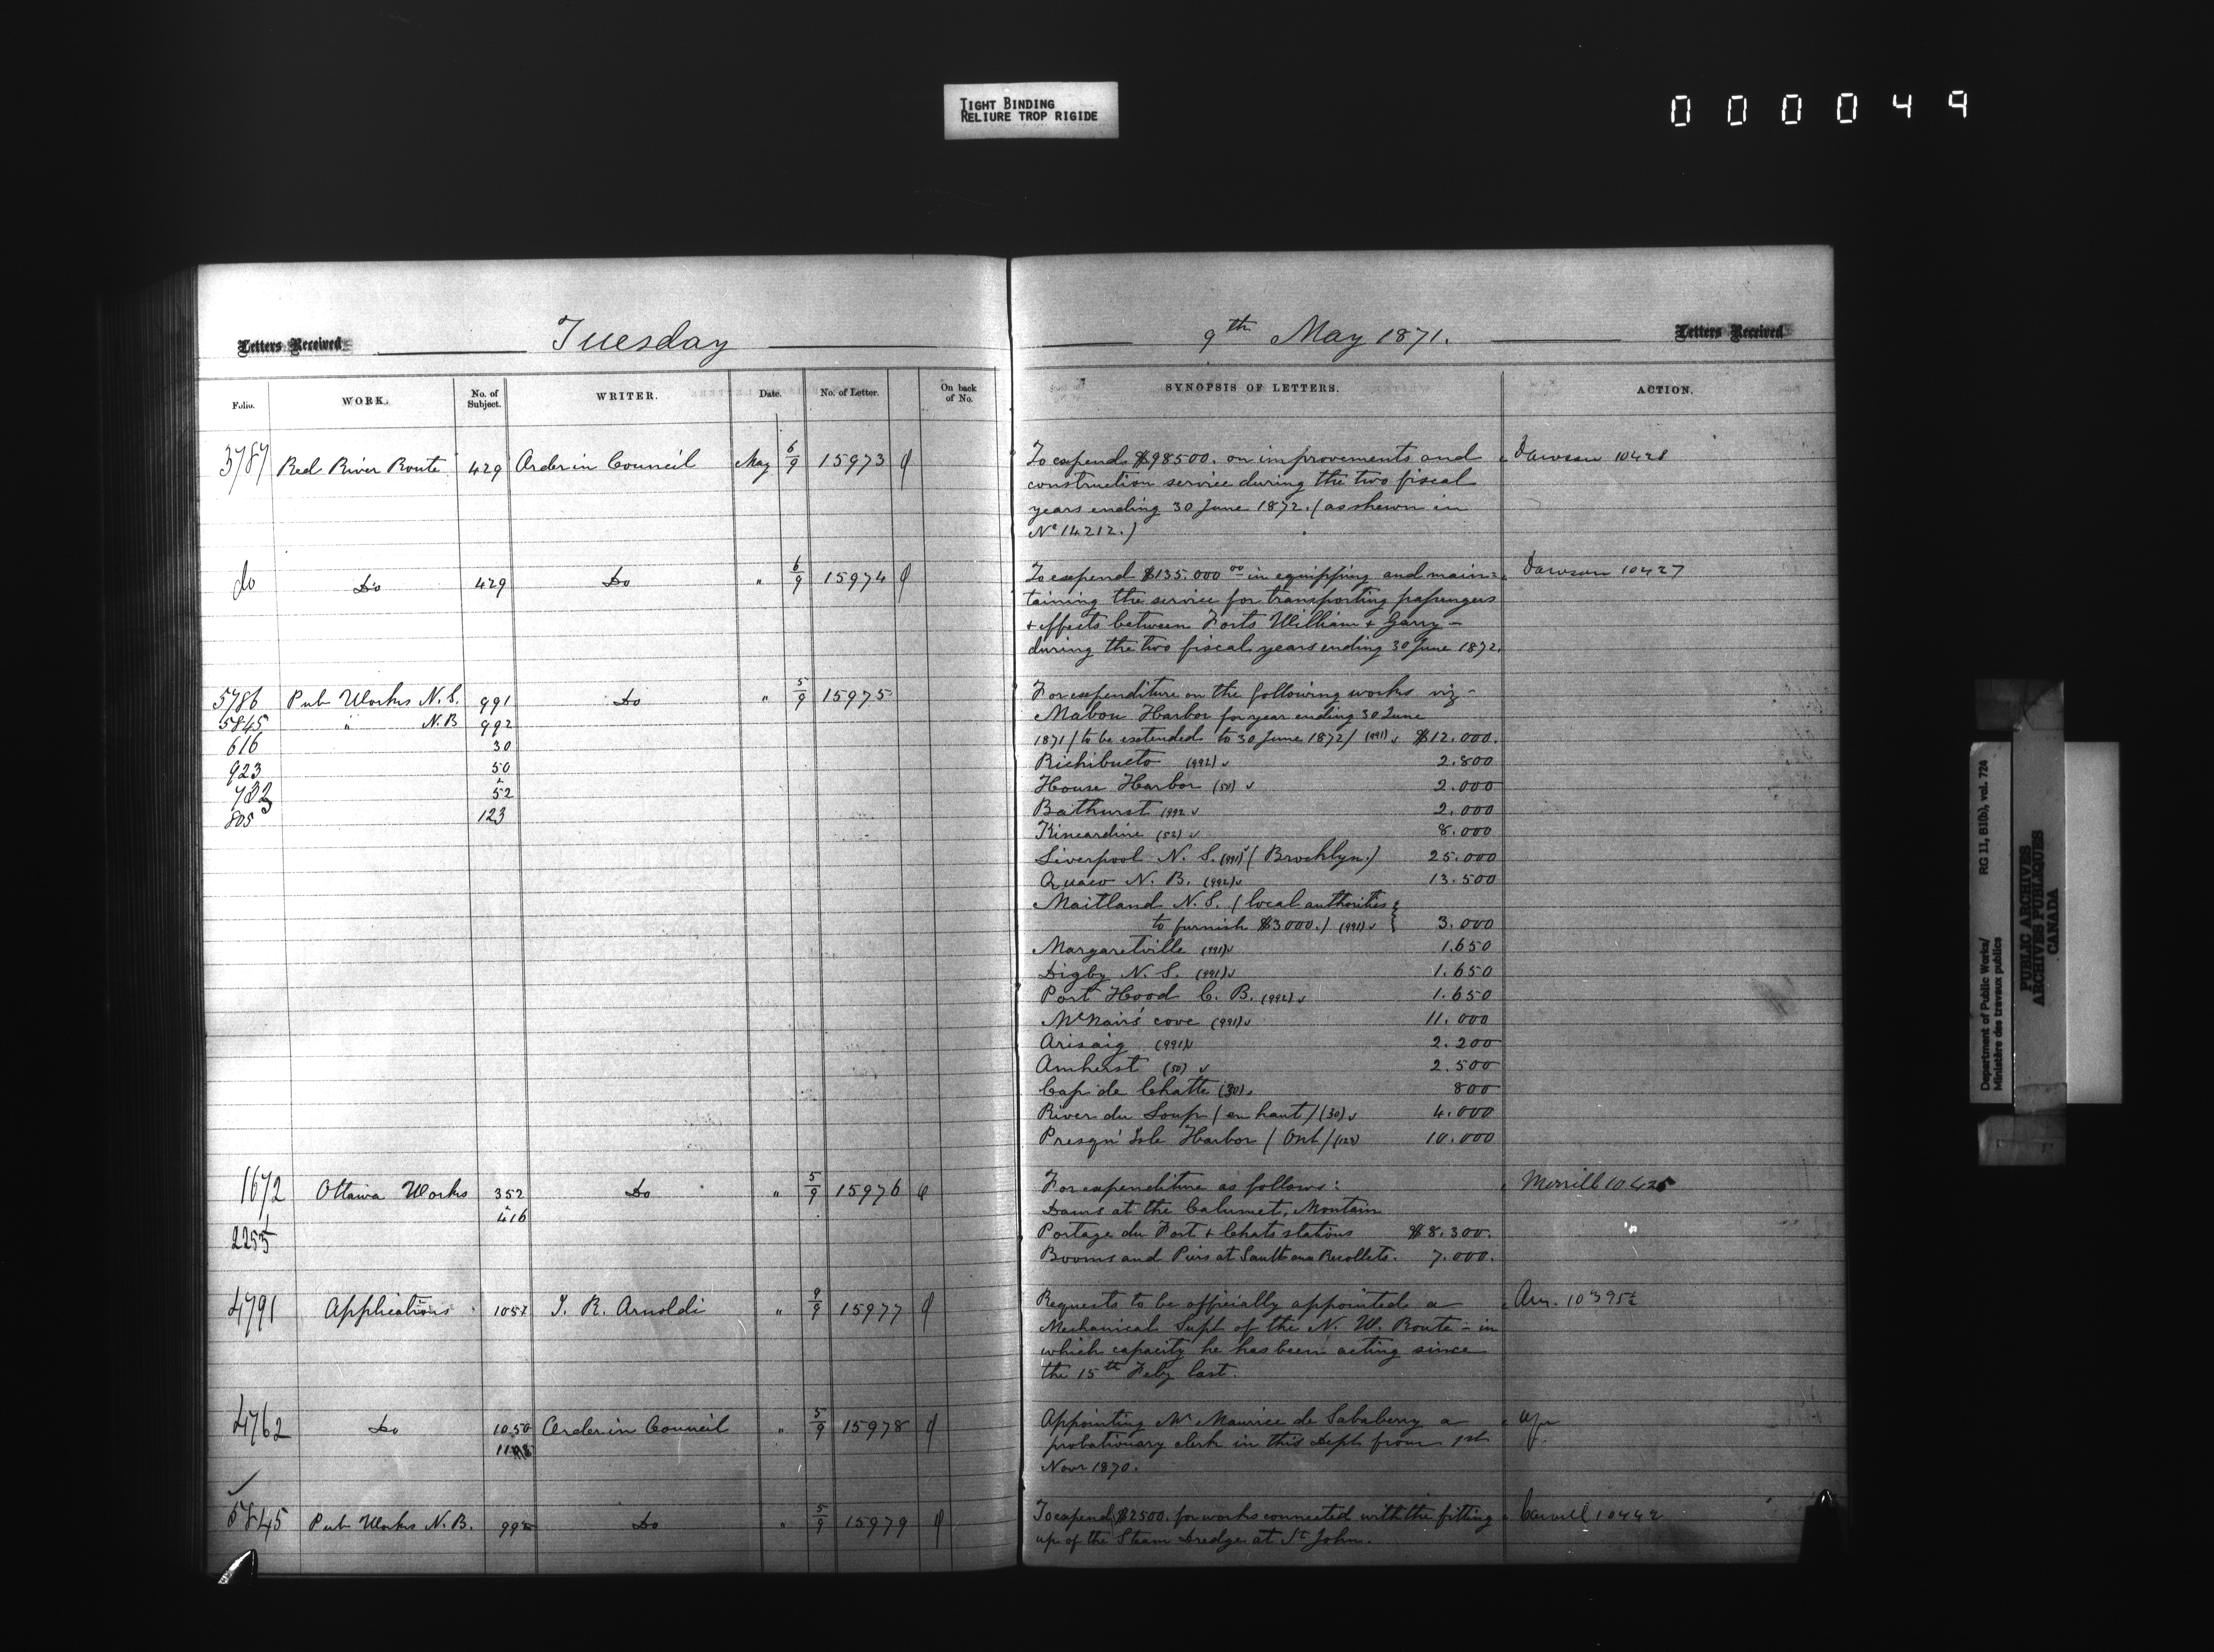 TIGHT BINDING
RELIURE TROP RIGIDE
000049
Letters Received Tuesday
Folio. WORK. No. of Subject. WRITER. Date. No. of Letter. On back of No.
3787 Red River Route 429 Order in Council May 6/9 15973
do Do 429 Do " 6/9 15974
5786 Pub Works N.S. 991 Do " 5/9 15975
5845 " N.B 992
616 30
923 50
52
805 123
1672 Ottawa Works 352 Do " 5/9 15976
& 416
2255
4791 Applications 1057 J. R. Arnoldi " 9/9 15977
4762 Do 1050 Order in Council " 5/9 15978
5845 Pub Works N.B. 992 Do " 5/9 15979
9th May 1871. Letters Received
SYNOPSIS OF LETTERS. ACTION.
To expend $98500. on improvements and Dawson 10428
construction service during the two fiscal
years ending 30 June 1872. (as shewn in
No 14212.)
To expend $135.000 00 in equipping and main= Dawson 10427
taining the service for transporting passengers
+ effects between Forts William + Garry -
during the two fiscal years ending 30 June 1872.
For expenditure on the following works viz -
Mabou Harbor for year ending 30 June
1871 (to be extended to 30 June 1872) (991) $12.000.
Richibucto (992) 2.800
House Harbor (50) 2.000
Bathurst (992 2.000
Kincardine (52) 8.000
Liverpool N. S. (991) (Brooklyn.) 25.000
Quaco N. B. (992) 13.500
Maitland N.S. (local authorities
to furnish $3000.) (991) 3.000
Margaretville (991) 1.650
Digby N. S. (991) 1.650
Port Hood C. B. (992) 1.650
McNairs' cove (991) 11.000
Arisaig (991) 2.200
Amherst (50) 2.500
Cap de Chatte (30) 800
River du Loup (en haut) (30) 4.000
Presqu' Isle Harbor (Ont) (123) 10.000
For expenditure as follows: Merrill 10425
Dams at the Calumet, Montain
Portage du Fort + Chats stations $8.300.
Booms and Piers at Sault aux Recollets. 7.000.
Requests to be officially appointed a Arn. 10395½
Mechanical Supt of the N. W. Route - in
which capacity he has been acting since
the 15th Feby last.
Appointing Mr Maurice de Salaberry a
probationary clerk in this Dept from 1st
Novr 1870.
To expend $2500. for works connected with the fitting Carvell 10442
up of the Steam Dredge at St John.
Department of Public Works/
Ministère des travaux publics
RG 11, B1(b), vol. 724
PUBLIC ARCHIVES
ARCHIVES PUBLIQUES
CANADA